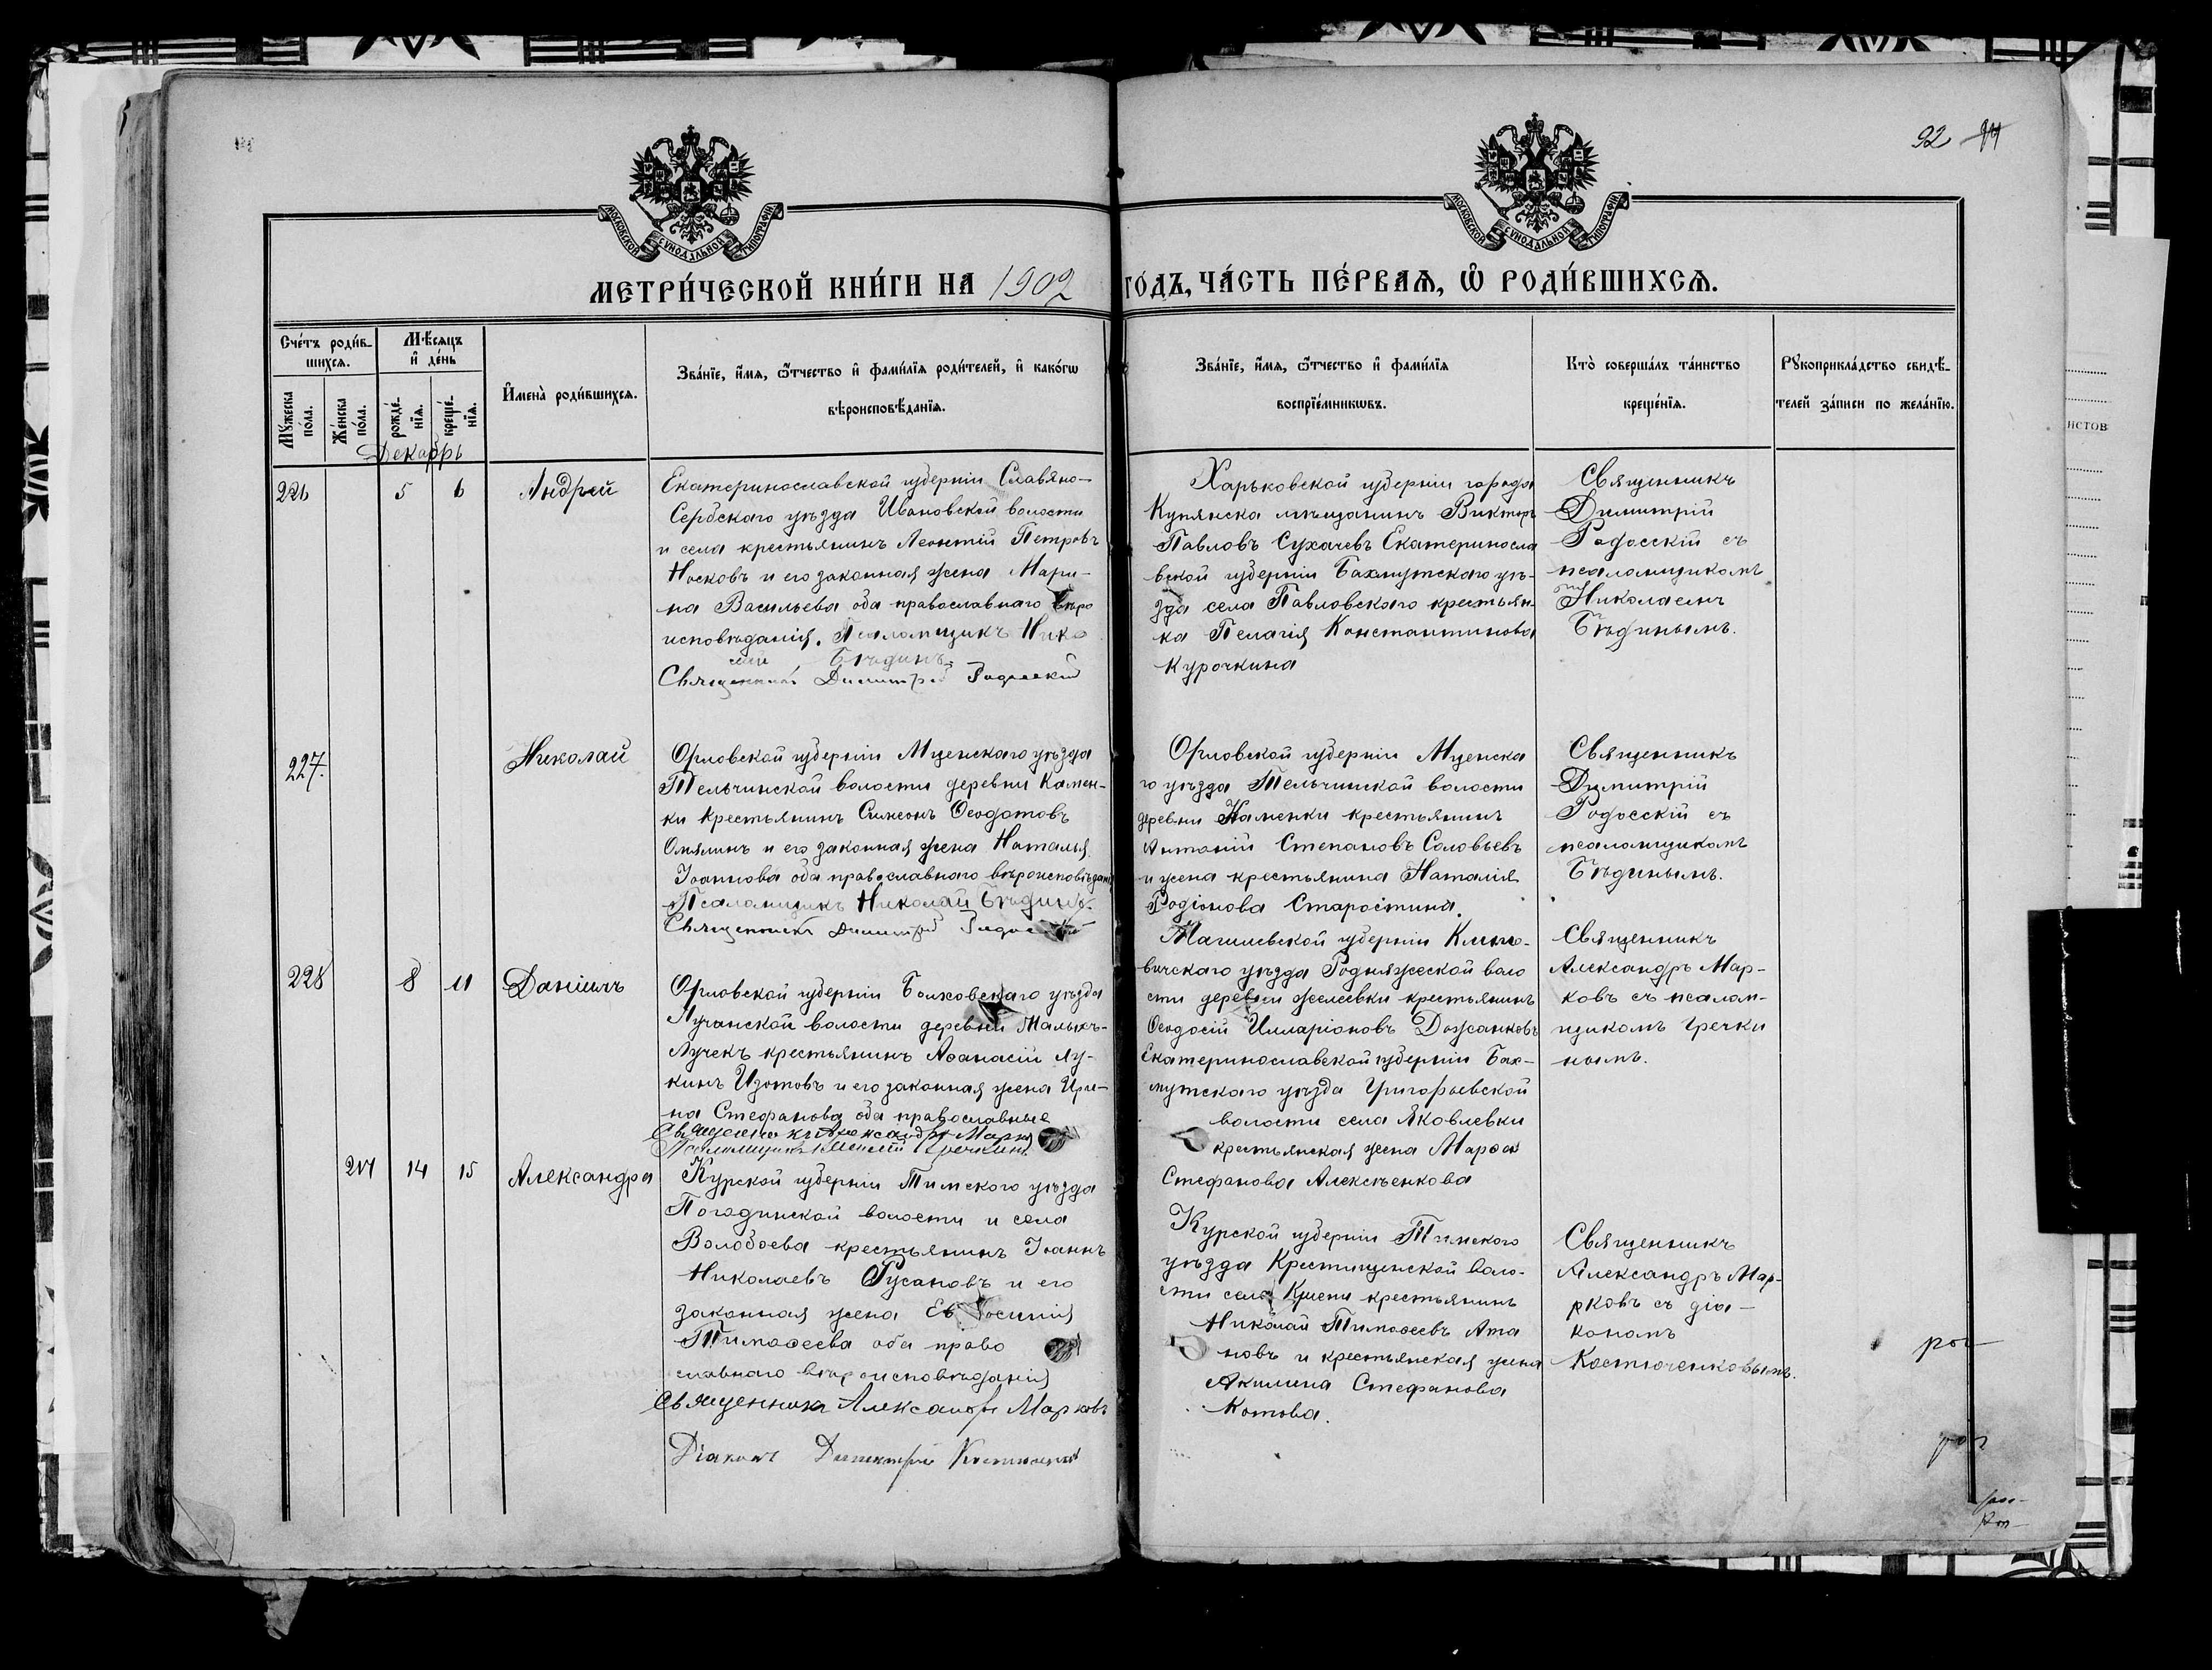 92
МОСКОВСКОЙ СѴНОДАЛЬНОЙ ТИПОГРАФІИ
МОСКОВСКОЙ СѴНОДАЛЬНОЙ ТИПОГРАФІИ
МЕТРИ́ЧЕСКОЙ КНИ́ГИ НА 1902 ГОДЪ, ЧА́СТЬ ПЕ́РВАѦ, Ѡ҆ РОДИ́ВШИХСѦ.
Сче́тъ роди́в-
шихсѧ.
Мꙋ́жеска по́ла.
Же́нска по́ла.
Мѣ́сѧцъ
и҆ де́нь
рожде́-нїѧ.
креще́-нїѧ.
И҆мена̀ роди́вшихсѧ.
Зва́нїе, и҆́мѧ, ѻ҆́тчество и҆ фами́лїѧ роди́телей, и҆ како́гѡ
вѣроисповѣ́данїѧ.
Зва́нїе, и҆́мѧ, ѻ҆́тчество и҆ фами́лїѧ
воспрїе́мникѡвъ.
Кто̀ соверша́лъ та́инство
креще́нїѧ.
Рꙋкоприкла́дство свидѣ́-
телей за́писи по жела́нїю.
Декабрь
226
5
6
Андрей
Екатеринославской губерніи Славяно-
Сербскаго уѣзда Ивановской волости
и села крестьянинъ Леонтій Петровъ
Носковъ и его законная жена Мари-
на Васильева оба православнаго вѣро
исповѣданія. Псаломщикъ Нико
лай Бѣдинъ
Священникъ Димитрій Родосскій
Харьковской губерніи города
Купянска мѣщанинъ Викторъ
Павловъ Сухачевъ Екатериносла
вской губерніи Бахмутскаго уѣ-
зда села Павловскаго крестьян-
ка Пелагія Константинова
Курочкина
Священникъ
Димитрій
Родосскій съ
псаломщикомъ
Николаемъ
Бѣдинымъ.
227.
Николай
Орловской губерніи Мценскаго уѣзда
Тельчинской волости деревни Камен-
ки крестьянинъ Симеонъ Ѳеодотовъ
и его законная жена Наталья
Іоаннова оба православнаго вѣроисповѣдан
Псаломщикъ Николай Бѣдинъ.
Священникъ Димитрій Родосскій
Орловской губерніи Мценска
го уѣзда Тельчинской волости
деревни Каменки крестьянинъ
Антоній Степановъ Соловьевъ
и жена крестьянина Наталія
Родіонова Старостина.
Священникъ
Димитрій
Родосскій съ
псаломщикомъ
Бѣдинымъ.
228
8
11
Даніилъ
Орловской губерніи Болховскаго уѣзда
Лучанской волости деревни Малыхъ-
Лучекъ крестьянинъ Аѳанасій Лу-
кинъ Изотовъ и его законная жена Ири-
на Стефанова оба православные
Священникъ Александръ Марковъ
Псаломщикъ Гречкинъ
Магилевской губерніи Климо-
вичскаго уѣзда волo
сти деревни крестьянинъ
Ѳеодосій Илларіоновъ Должанковъ
Екатеринославской губерніи Бах-
мутскаго уѣзда Григорьевской
волости села Яковлевки
крестьянская жена Марѳа
Стефанова Алексѣенкова
Священникъ
Александръ Мар-
ковъ съ псалом-
щикомъ Гречки
нымъ.
217
14
15
Александра
Курской губерніи Тимского уѣзда
Погодинской волости и села
Волобоева крестьянинъ Іоаннъ
Николаевъ Русановъ и его
законная жена Евѳосинія
Тимоѳеева оба право
славнаго вѣроисповѣданія
Священникъ Александръ Марковъ
Діаконъ Димитрій
Курской губерніи Тимского
уѣзда Крестищенской воло-
сти села крестьянинъ
Николай Тимоѳеевъ Ата
новъ и крестьянская жена
Акилина Стефанова
Котова.
Священникъ
Александръ Мар-
рковъ съ діа-
кономъ
Костюченковымъ.
ИСТОВ